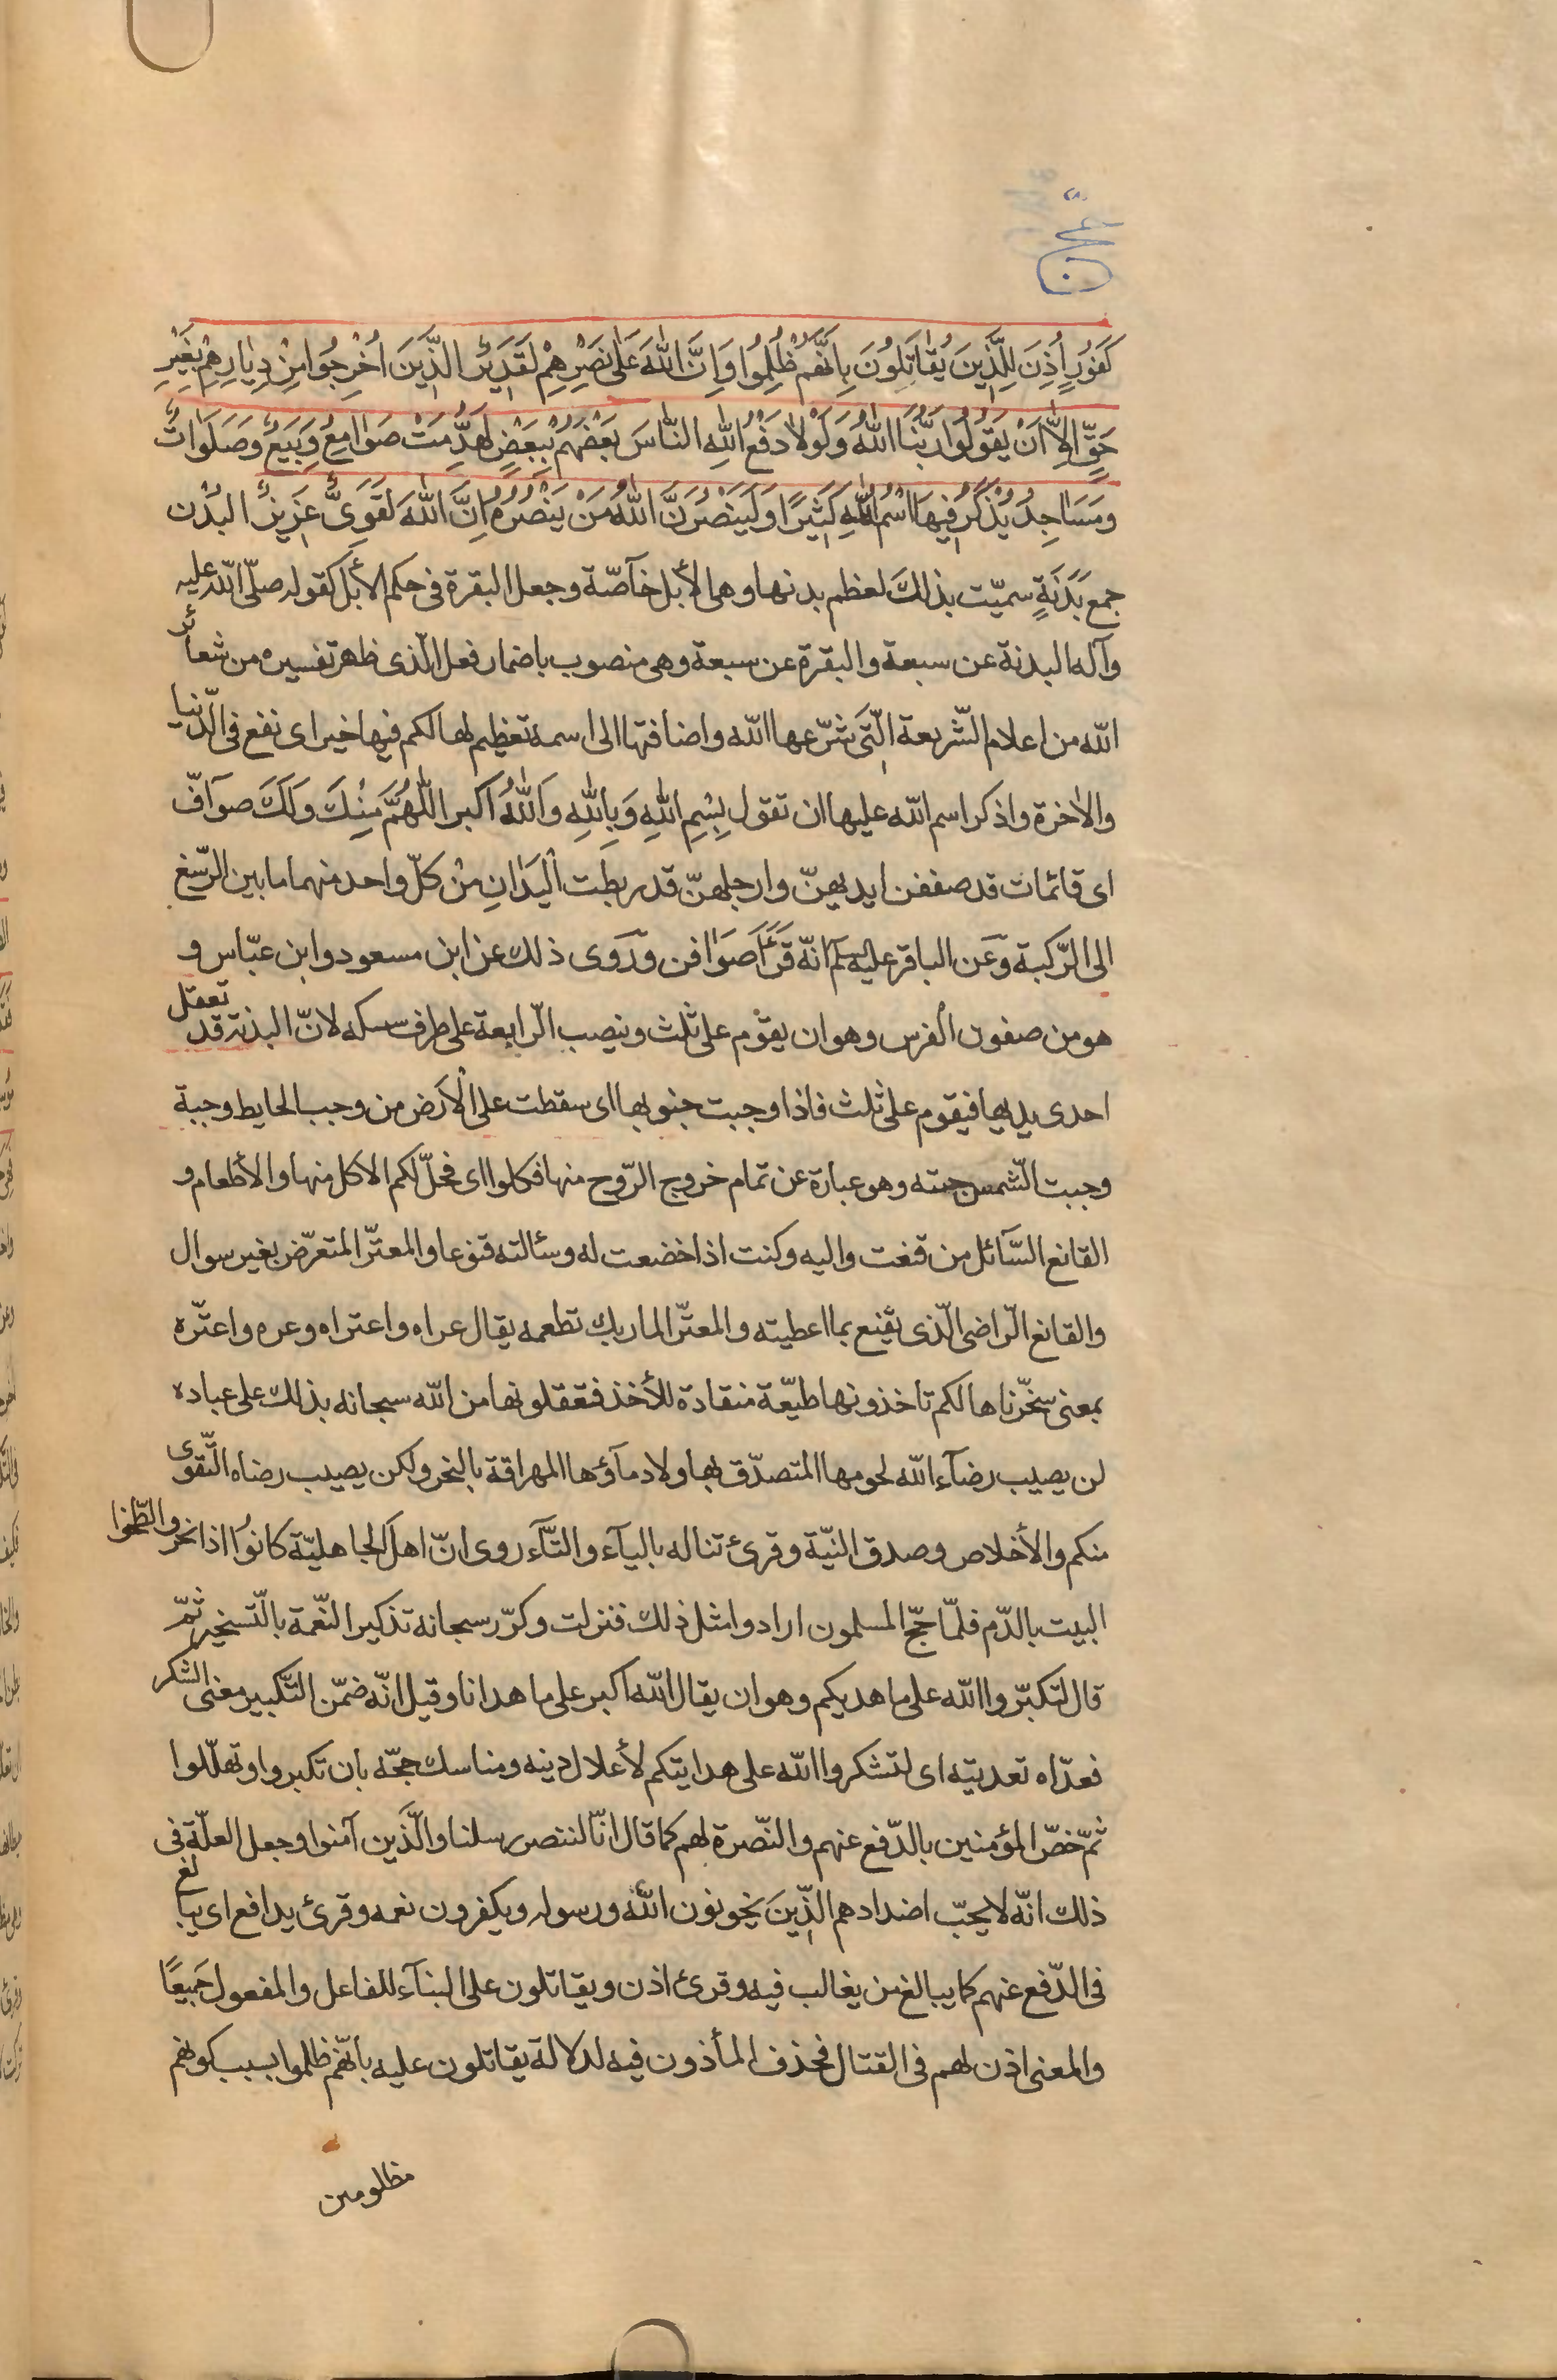 حج
كَفُورٍ أُذِنَ لِلَّذِينَ يُقَاتَلُونَ بِاَنَّهُمْ ظُلِمُوا وَاِنَّ اللّٰهَ عَلٰى نَصْرِهِمْ لَقَدِيرٌ الَّذِينَ اُخْرِجُوا مِنْ دِيٰارِهِمْ بِغَيْرِ
حَقٍّ اِلّٰا اَنْ يَقُولُوا رَبُّنَا اللّٰهُ وَلَوْلٰا دَفْعُ اللّٰهِ النّٰاسَ بَعْضَهُمْ بِبَعْضٍ لَهُدِّمَتْ صَوٰامِعُ وَبِيَعٌ وَصَلَوَاتٌ
وَمَسَاجِدُ يُذْكَرُ فِيهَا اسْمُ اللّٰهِ كَثِيرًا وَلَيَنْصُرَنَّ اللّٰهُ مَنْ يَنْصُرُهُ اِنَّ اللّٰهَ لَقَوِىٌّ عَزِيزٌ البُدْن
جمع بَدَنَةٍ سميّت بذلكَ لعظم بدنها وهى الأبل خآصّة وجعل البقرة فى حكم الأبل كقوله صلّى اللّه عليه
وآله البدنة عن سبعة والبقرة عن سبعة وهى منصوب باضمار فعل الّذى ظهر تفسيره من شعائر
اللّه من اعلام الشّريعة الّتى شرّعها اللّه واضافتها الى اسمه تعظيم لها لكم فيها خير اى نفع فى الدّنيا
والاٰخرة واذكر اسم اللّه عليها ان تقول بِسْمِ اللّٰهِ وَبِاللّٰهِ وَاللّٰهُ اكبر اللّٰهُمَّ مِنْكَ وَلَكَ صوآفّ
اى قائمات قد صففن ايديهنّ وارجلهنّ قد ربطت اليَدَانِ مِنْ كلّ واحد منهما ما بين الرّسغ
الى الرّكبة وَعَن الباقر عليه السلم انّه قَرَأَ صَوَافن وَرَوى ذلك عن ابن مسعود وابن عبّاس و
هو من صفون الفرس وهو ان يقوْم على ثلث وينصب الرّابعة على طرف سسكه لانّ البدنة قد تعقل
احدى يديها فيقوم على ثلث فاذا وجبت جنوبها اى سقطت على الأرض من وجب الحايط وجبة
وجبت الشّمس جبته وهو عبارة عن تمام خروج الرّوح منها فكلوا اى فحلّ لكم الاكل منها والأطعام و
القانع السّآئل من قنعت واليه وكنت اذا خضعت له وسئالته قنوعا والمعترّ المتعرّض بغير سوال
والقانع الرّاضى الّذى يقنع بما اعطيته والمعترّ المار بك تطعمه يقال عراه واعتراه وعره واعترّه
بمعنى سخّرناها لكم تاخذونها طيّعة منقادة للأخذ فتعقلونها من اللّه سبحانه بذلك على عباده
لن يصيب رضآء اللّه لحومها المتصدّق بها ولا دمآؤها المهراقة بالنحر ولكن يصيب رضاه التّقوى
منكم والأخلاص وصدق النيّة وقرئ تناله باليآء والتآء روى انّ اهل الجاهليّة كانوا اذا نحروا لطّخوا
البيت بالدّم فلمّا حجّ المسلمون ارادوا مثل ذلك فنزلت وكرّر سبحانه تذكير النّعمة بالتّسخير ثمّ
قال لتكبّروا اللّه على ما هديكم وهو ان يقال اللّه اكبر على ما هدانا وقيل انّه ضمّن التّكبير معنى الشكر
فعدّاه تعديته اى لتشكروا اللّه على هدايتكم لأعلال دينه ومناسك حجّه بان تكبروا وتهلّلوا
ثمّ خصّ المؤمنين بالدّفع عنهم والنّصرة لهم كما قال انّا لننصر رسلنا والّذين آمنوا وجعل العلّة فى
ذلك انّه لا يحبّ اضدادهم الّذين يخونون اللّٰه ورسوله ويكفرون نعمه وقرئ يدافع اى يبالغ
فى الدّفع عنهم كما يبالغ من يغالب فيه وقرئ اذن ويقاتلون على البنآء للفاعل والمفعول جَمِيعًا
والمعنى اذن لهم فى القتال فحذف المأذون فيه لدلالة يقاتلون عليه بانّهم ظلموا بسبب كونهم
مظلومين